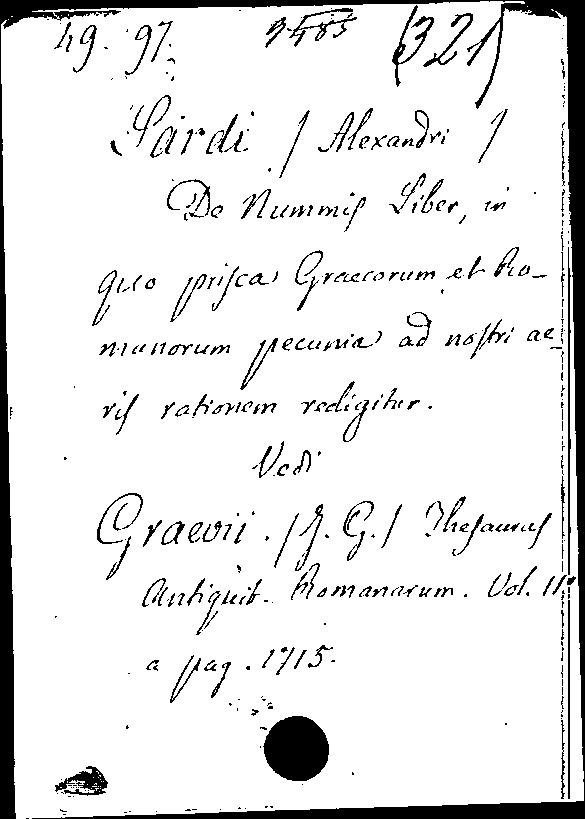 49. 97.
(321)
Sardi / Alexandri /
De Nummis Liber, in
quo prisca Graecorum et Ro-
manorum pecunia ad nostri ae-
ris rationem redigitur.
Vedi
Graevii. / J. G. / Thesaurus
Antiquit. Romanarum. Vol. 11.
a pag. 1715.